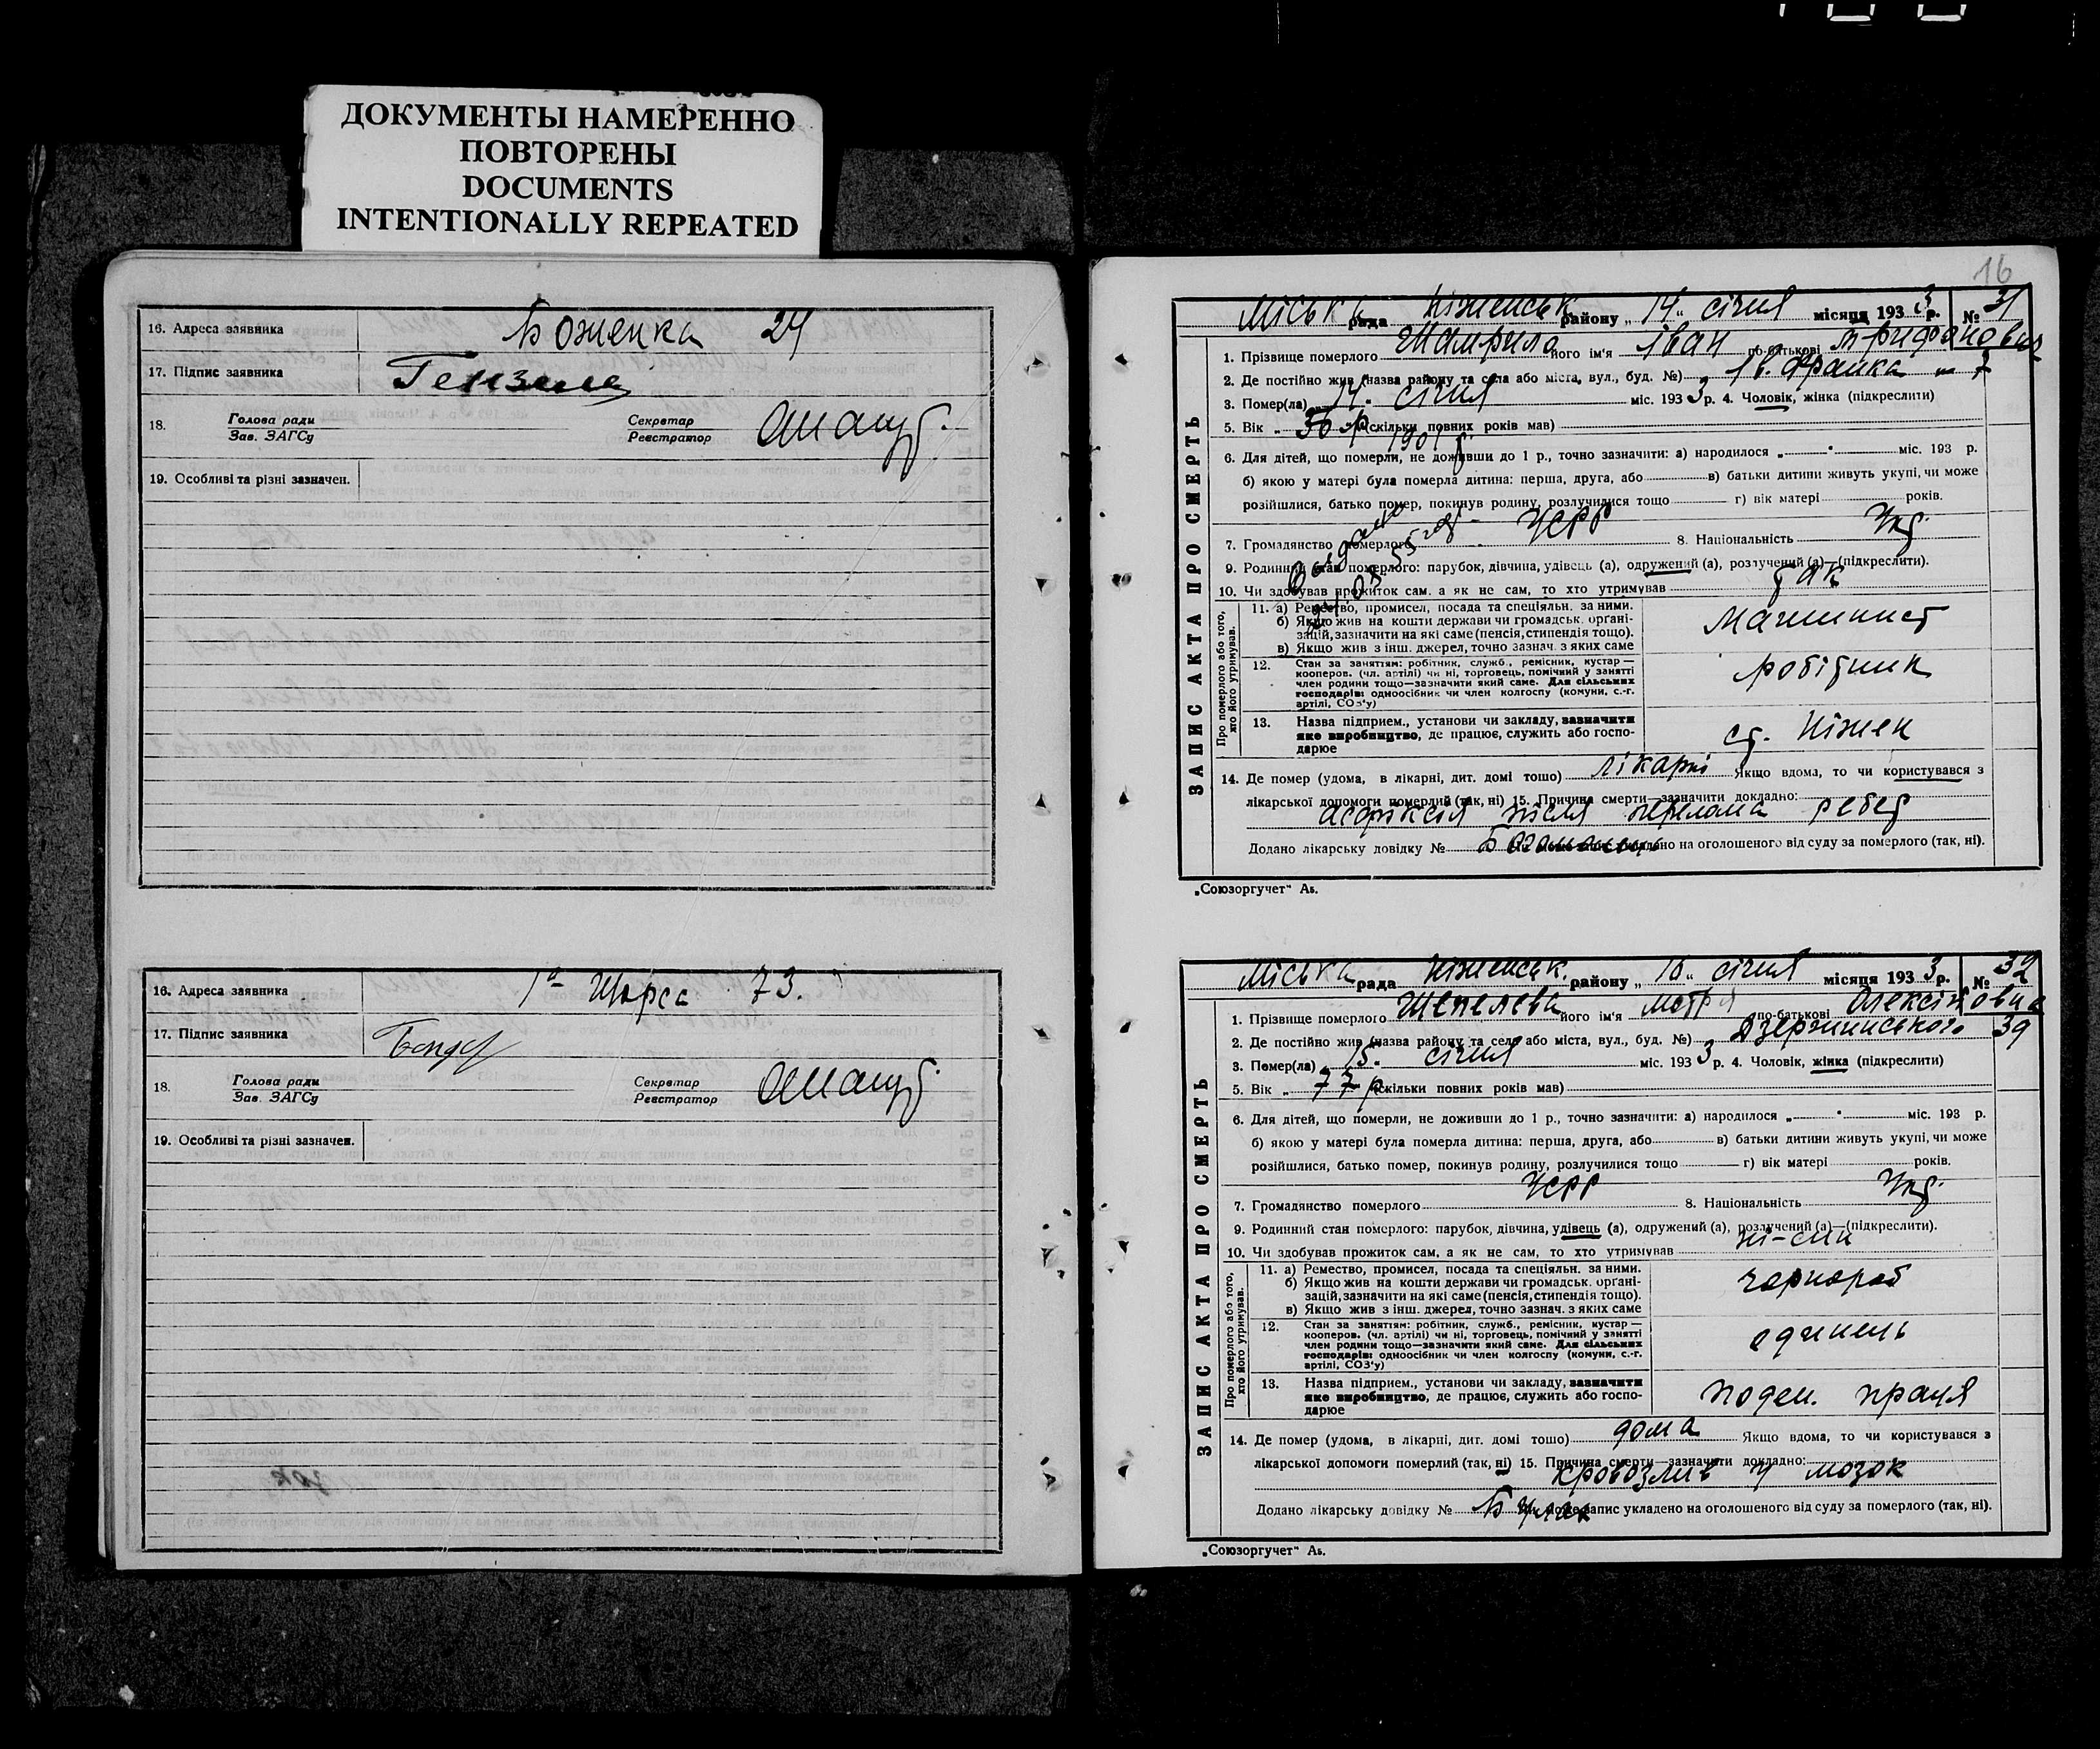 ДОКУМЕНТЫ НАМЕРЕННО
ПОВТОРЕНЫ
DOCUMENTS
INTENTIONALLY REPEATED
16. Адреса заявника Боженка 24
17. Підпис заявника
18. Голова ради
Зав. ЗАГСу
Секретар
Реєстратор
19. Особливі та різні зазначен.
16. Адреса заявника Щорса 73.
17. Підпис заявника
18. Голова ради
Зав. ЗАГСу
Секретар
Реєстратор
19. Особливі та різні зазначен.
16
ЗАПИС АКТА ПРО СМЕРТЬ
Міська рада Ніженськ району „14“ січня місяця 1933 р. № 31
1. Прізвище померлого його ім'я Іван по-батькові
2. Де постійно жив (назва району та села або міста, вул., буд. №) Ів. Франка 7
3. Помер(ла) „14“ січня міс. 1933 р. 4. Чоловік, жінка (підкреслити)
5. Вік „ р. (скільки повних років мав)
1901 р
6. Для дітей, що померли, не доживши до 1 р., точно зазначити: а) народилося „ “ міс. 193 р.
б) якою у матері була померла дитина: перша, друга, або в) батьки дитини живуть укупі, чи може
розійшлися, батько помер, покинув родину, розлучилися тощо г) вік матері років.
7. Громадянство померлого УСРР 8. Національність Укр.
9. Родинний стан померлого: парубок, дівчина, удівець (а), одружений (а), розлучений (а)—(підкреслити).
10. Чи здобував прожиток сам, а як не сам, то хто утримував так
Про померлого або того, хто його утримував.
11. а) Ремество, промисел, посада та спеціяльн. за ними.
б) Якщо жив на кошти держави чи громадськ. органі-
зацій, зазначити на які саме (пенсія, стипендія тощо).
в) Якщо жив з інш. джерел, точно зазнач. з яких саме
Машинист
12. Стан за заняттям: робітник, служб., ремісник, кустар—
кооперов. (чл. артілі) чи ні, торговець, помічний у занятті
член родини тощо—зазначити який саме. Для сільських
господарів: одноосібник чи член колгоспу (комуни, с.-г.
артілі, СОЗ'у)
робітник
13. Назва підприєм., установи чи закладу, зазначити
яке виробництво, де працює, служить або госпо-
дарює
ст. Ніжен
14. Де помер (удома, в лікарні, дит. домі тощо) лікарні Якщо вдома, то чи користувався з
лікарської допомоги померлий (так, ні) 15. Причина смерти—зазначити докладно:
асфіксія після перелома ребер
Додано лікарську довідку № укладено на оголошеного від суду за померлого (так, ні).
„Союзоргучет“ Аь.
ЗАПИС АКТА ПРО СМЕРТЬ
Міська рада Ніженськ. району „ “ січня місяця 1933 р. № 32
1. Прізвище померлого Шепелева його ім'я Мотря по-батькові
2. Де постійно жив (назва району та села або міста, вул., буд. №) Дзержинського 39
3. Помер(ла) „15“ січня міс. 1933 р. 4. Чоловік, жінка (підкреслити)
5. Вік „ 77 р. (скільки повних років мав)
6. Для дітей, що померли, не доживши до 1 р., точно зазначити: а) народилося „ “ міс. 193 р.
б) якою у матері була померла дитина: перша, друга, або в) батьки дитини живуть укупі, чи може
розійшлися, батько помер, покинув родину, розлучилися тощо г) вік матері років.
7. Громадянство померлого УСРР 8. Національність Укр.
9. Родинний стан померлого: парубок, дівчина, удівець (а), одружений (а), розлучений (а)—(підкреслити).
10. Чи здобував прожиток сам, а як не сам, то хто утримував ні-син
Про померлого або того, хто його утримував.
11. а) Ремество, промисел, посада та спеціяльн. за ними.
б) Якщо жив на кошти держави чи громадськ. органі-
зацій, зазначити на які саме (пенсія, стипендія тощо).
в) Якщо жив з інш. джерел, точно зазнач. з яких саме
чорнороб
12. Стан за заняттям: робітник, служб., ремісник, кустар—
кооперов. (чл. артілі) чи ні, торговець, помічний у занятті
член родини тощо—зазначити який саме. Для сільських
господарів: одноосібник чи член колгоспу (комуни, с.-г.
артілі, СОЗ'у)
13. Назва підприєм., установи чи закладу, зазначити
яке виробництво, де працює, служить або госпо-
дарює
поден. праця
14. Де помер (удома, в лікарні, дит. домі тощо) дома Якщо вдома, то чи користувався з
лікарської допомоги померлий (так, ні) 15. Причина смерти—зазначити докладно:
кровозлив у мозок
Додано лікарську довідку № запис укладено на оголошеного від суду за померлого (так, ні).
„Союзоргучет“ Аь.